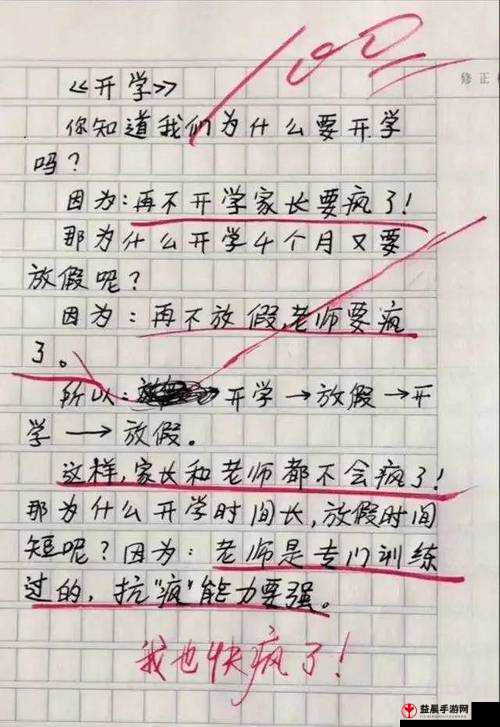 100
修正
《开学》
你知道我们为什么要开学
吗？
因为：再不开学家长要疯了！
那为什么开学4个月又要
放假呢？
因为：再不放假,老师要疯
了。
所以：开学→放假→开
学→放假。
这样,家长和老师都不会疯了！
那为什么开学时间长,放假时间
短呢？因为：老师是专门训练
过的，抗"疯"能力要强。
我也快疯了！
益晨手游网